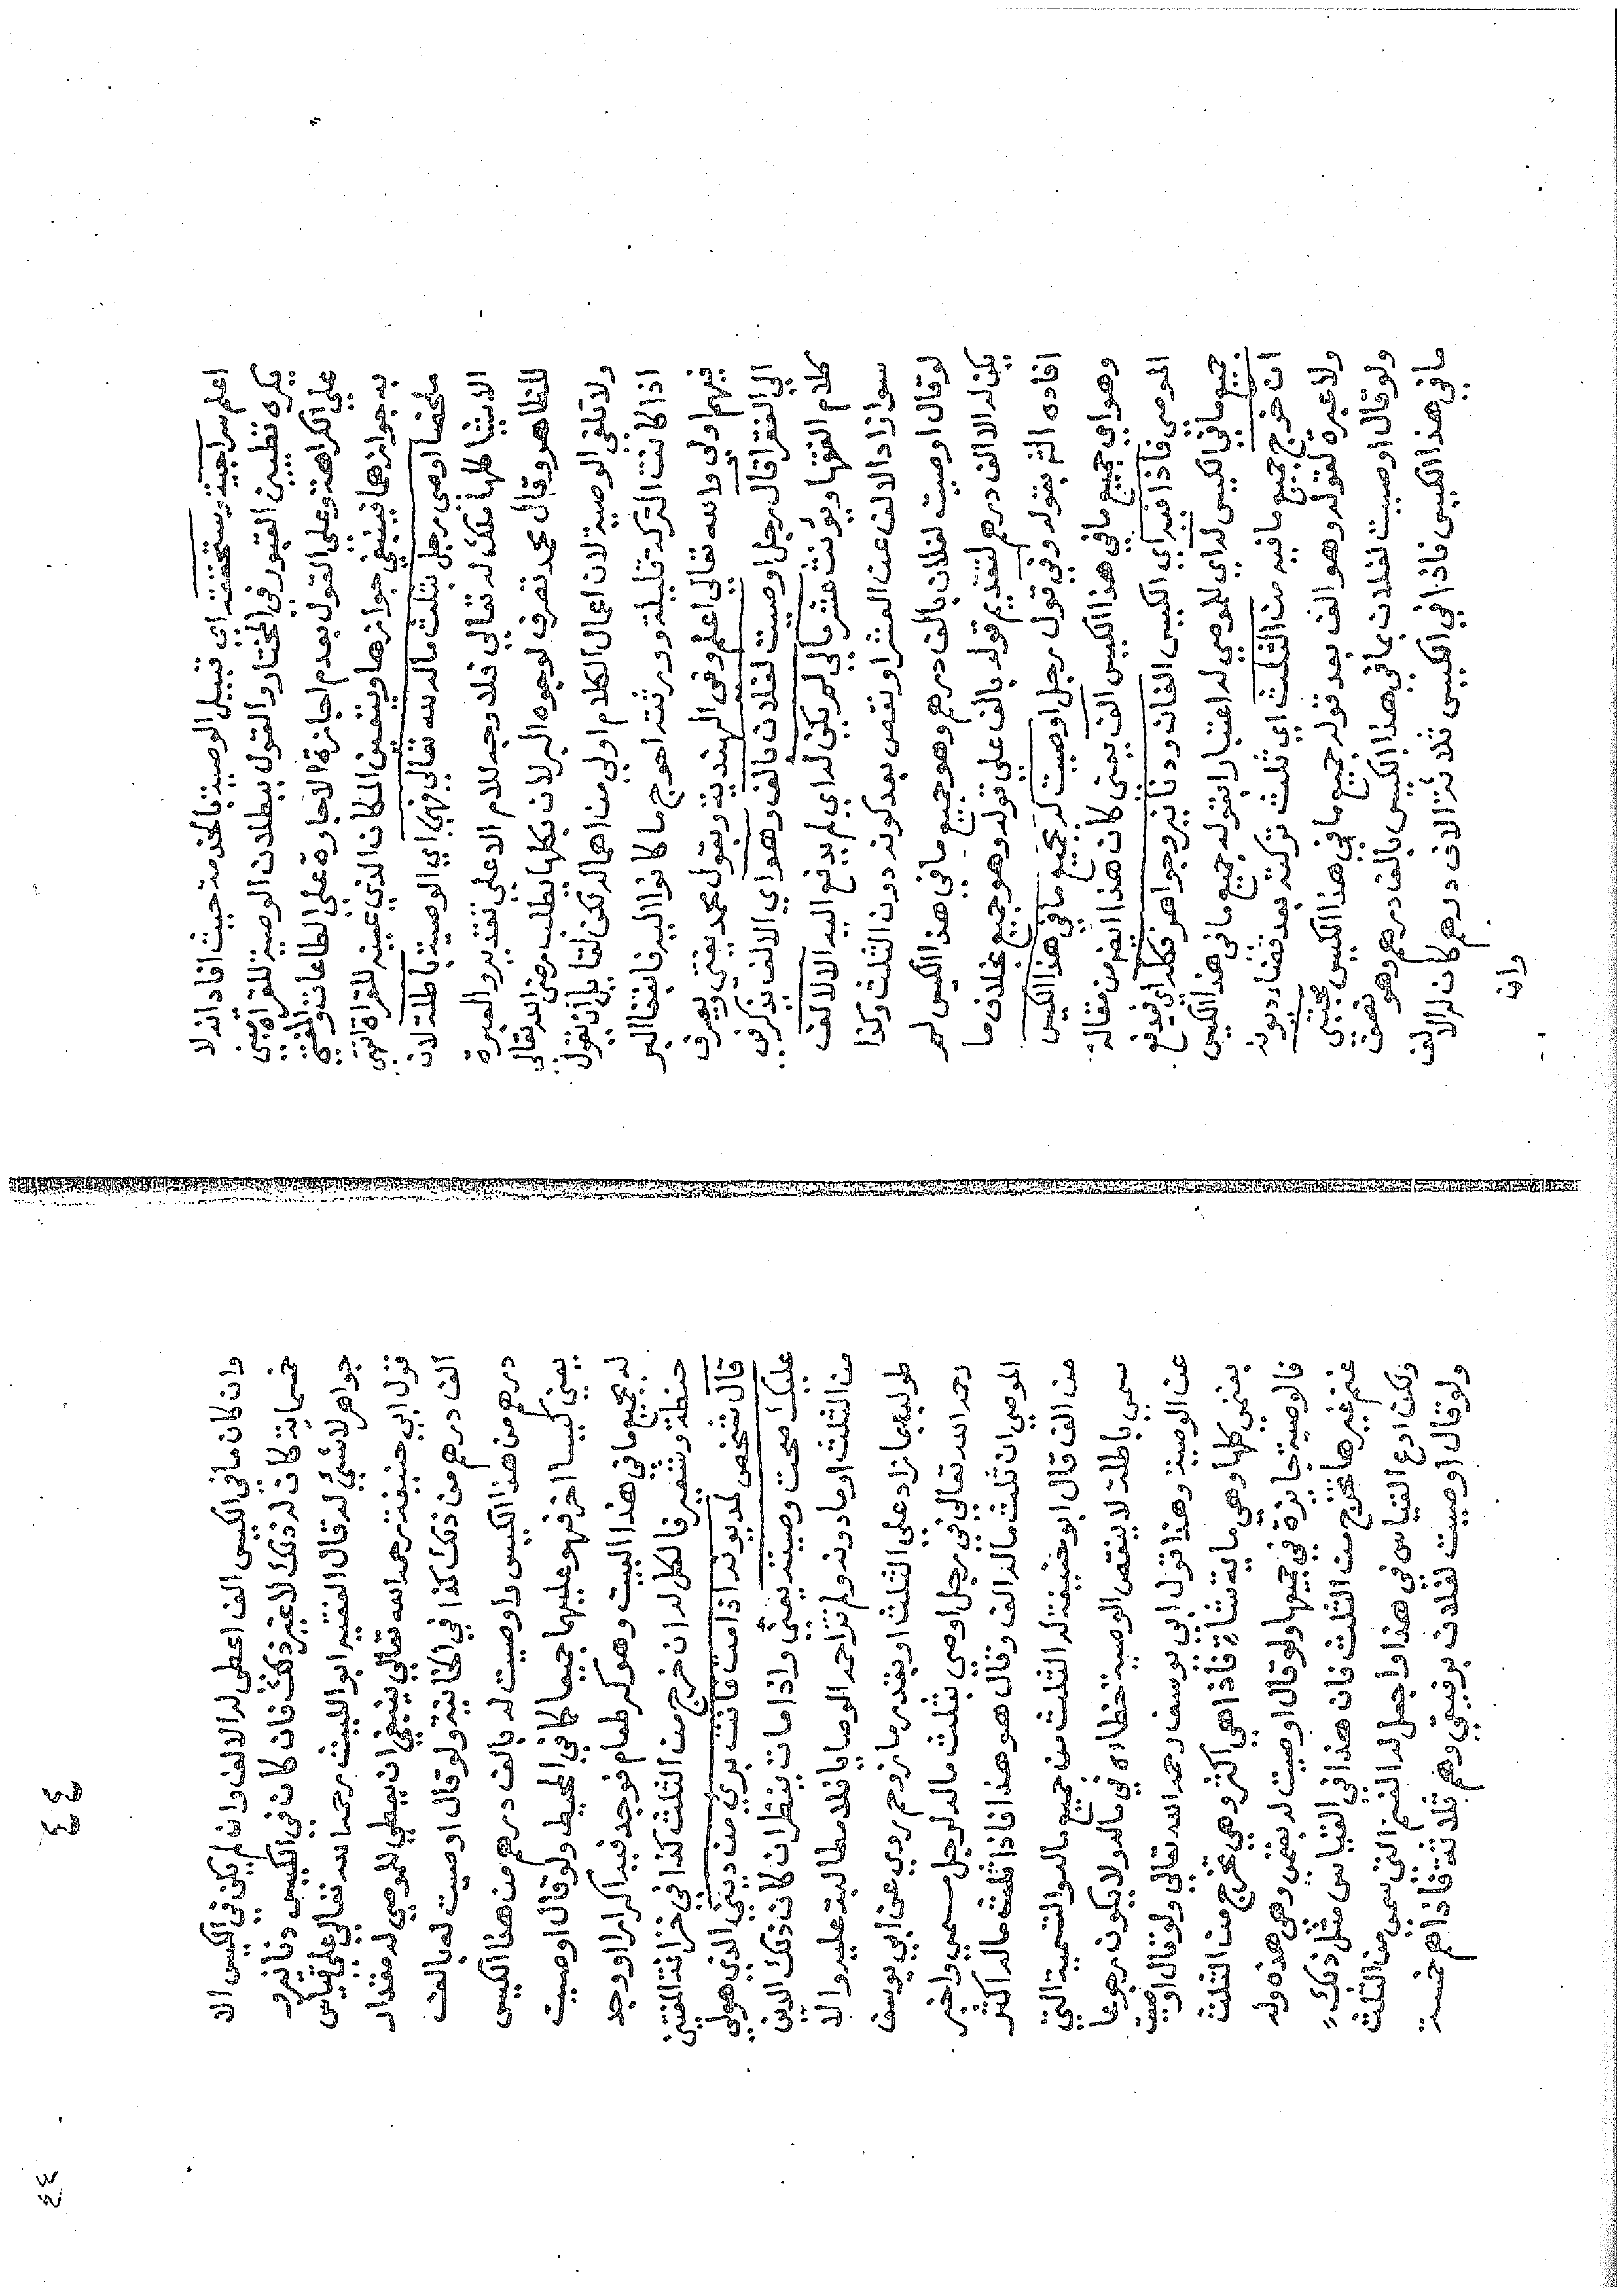 اعلم سراجية وستحققه اي قبيل الوصية بالخدمة حيث افاد انه لا
يكره تطيين القبور في المختار والقول ببطلان الوصية للقراة مبني
علي الكراهة وعلي القول بعدم اجازة الاجارة علي الطاعات والمفتي
به جوازهما فينبغي جوازها ويتعين المكان الذي عينه للقراة انتهي
ملخصا اوصي رجل بثلث ماله لله تعالي فهي اي الوصية باطلة لان
الاشيا كلها ملك له تعالي فلا وجه للام الا علي تقدير والعبرة
للظاهر وقال محمد تصرف لوجوه البر لان بكلها يطلب رضي الله تعالي
ولا تلغي الوصية لان اعمال الكلام اولي من اهماله لكن لقايل ان يقول
اذا كانت التركة قليلة وورثته احوج ما كانوا اليه فانتفا البر
فيهم اولي والله تعالي اعلم وفي الهندية وبقول محمد يفتي ويصرف
الي الفقرا قال رجل اوصيت لفلان بالف وهو اي الالف
كلام الفقها ويؤنث عشر مالي لم يكن له اي لم يدفع اليه الا الالف
سوا زاد الالف عن العشر او نقص بعد كونه دون الثلث وكذا
لو قال اوصيت لفلان بالف درهم وهو جميع ما في هذا الكيس لم
يكن له الا الف درهم لتقديم قوله بالف علي قوله وهو جميع بخلاف ما
افاده الثم بقوله وفي قول رجل اوصيت له بجميع ما في هذا الكيس
وهو اي جميع ما في هذا الكيس الف يعني كان هذا ايضا من مقالة
الموصي فاذا فيه اي الكيس الفان ودنانير وجواهر فكله اي فيدفع
جميع ما في الكيس له اي للموصي له اعتبارا بقوله جميع ما في هذا الكيس
ان خرج جميع ما فيه من الثلث اي ثلث تركته بعد قضا ديونه
ولا عبرة لقوله وهو الف بعد قوله جميع ما في هذا الكيس مجتبي
ولو قال اوصيت لفلان بما في هذا الكيس بالف درهم وهو نصف
ما في هذا الكيس فاذا في الكيس ثلاثة الاف درهم كان له الالف
وان
٤٤
٤٤
وان كان ما في الكيس الف اعطي له الالف وان لم يكن في الكيس الا
خمسماية كان له ذلك لا غير ذلك فان كان في الكيس دنانير و
جواهر لا شي له قال الفقيه ابو الليث رحمه الله تعالي علي قياس
قول ابي حنيفة رحمه الله تعالي ينبغي ان يعطي للموصي له مقدار
الف درهم من ذلك كذا في الخانية ولو قال اوصيت له بالف
درهم من هذا الكيس واوصيت له بالف درهم من هذا الكيس
يعني كيسا اخر فهو عليهما جميعا كما في المحيط ولو قال اوصيت
له بجميع ما في هذا البيت وهو كر طعام فوجد فيه اكرارا او وجد
حنطة وشعير فالكل له ان خرج من الثلث كذا في خزانة المفتين
قال شخص لمديونه اذا مت فانت بري من ديني الذي هو لي
عليك صحت وصيته يعني واذا مات ينظر ان كان ذلك الدين
من الثلث او ما دونه ولم تزاحمه الوصايا فلا مطالبة عليه والا
طولب بما زاد علي الثلث او بقدر ما زوحم روي عن ابي يوسف
رحمه الله تعالي في رجل اوصي بثلث ماله لرجل مسمي واخبر
الموصي ان ثلث ماله الف وقال هو هذا فاذا ثلث ماله اكثر
من الف قال ابو حنيفة له الثلث من جميع ماله والتسمية التي
سمي باطلة لا ينقص الوصية خطاوه في ماله ولا يكون رجوعا
عن الوصية وهذا قول ابي يوسف رحمه الله تعالي ولو قال اوصيت
بغنمي كلها وهي ماية شاة فاذا هي اكثر وهي تخرج من الثلث
فالوصية جايزة في جميعها ولو قال اوصيت له بغنمي وهي هذه وله
غنم غيرها تخرج من الثلث فان هذا في القياس مثل ذلك
ولكن ادع القياس في هذا واجعل له الغنم التي سمي من الثلث
ولو قال اوصيت لفلان برقيقي وهم ثلاثة فاذا هم خمسة